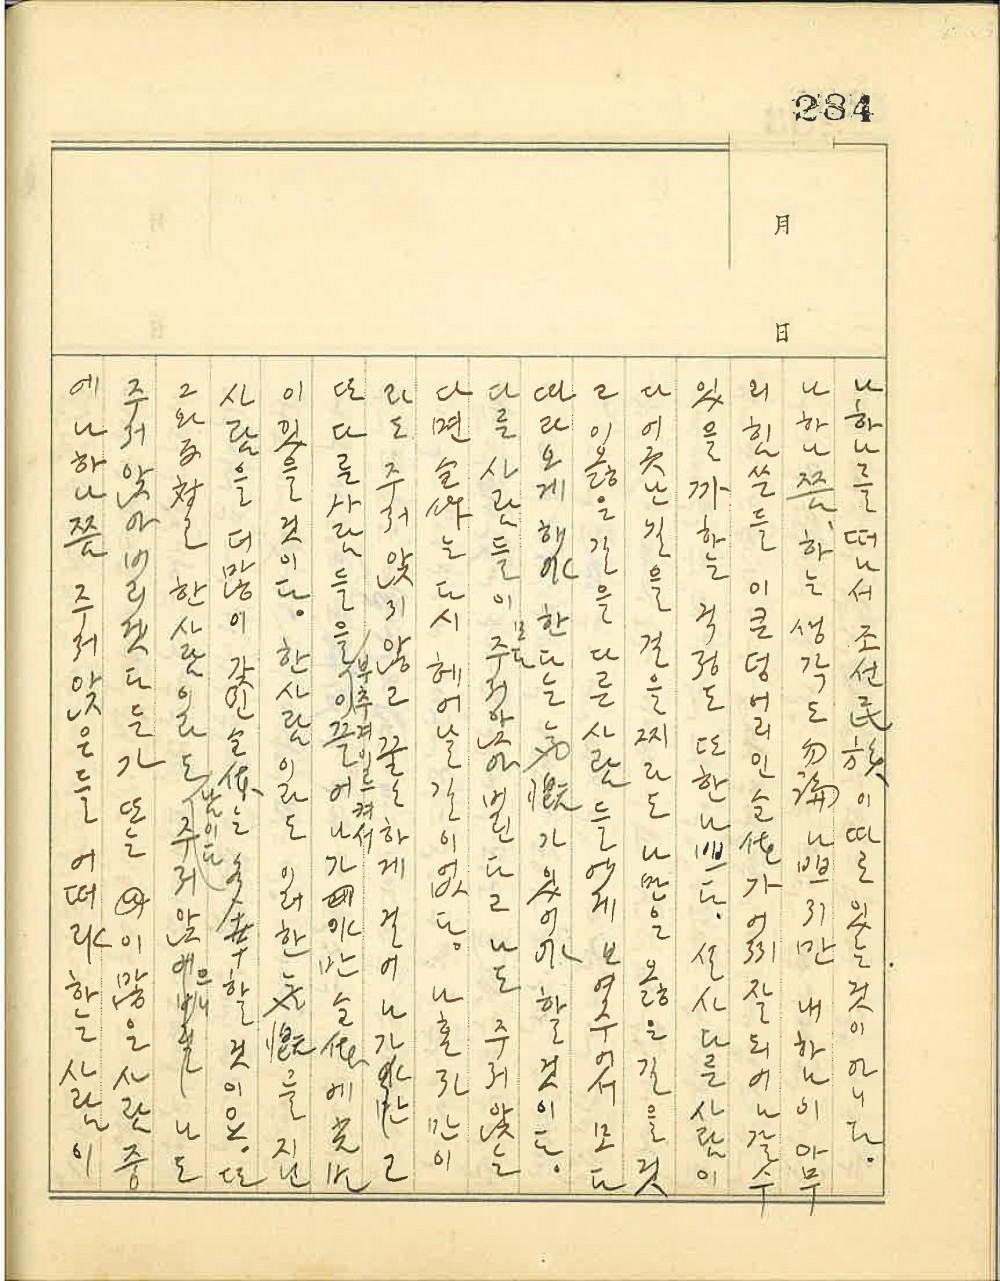 284
月
日
나 하나를 떠나서 조선民族이 따로 있는것이 아니다.
나 하나 쯤, 하는 생각도 勿論 나쁘지만 내 하나이 아무
리 힘쓴들 이 큰 덩어리인 全體가 어찌 잘 되어 나갈 수
있을까 하는 걱정도 또한 나쁘다. 설사 다른 사람이
다 어긋난 길을 걸을 찌라도 나만은 옳은 길을 걷
고 이 옳은 길을 다른 사람들에게 보여주어서 모다
따라오게 해야 한다는 氣慨가 있어야 할 것이다.
다른 사람들이 모다 주저앉아 버린다고 나도 주저앉는
다면 全體는 다시 헤어날 길이 없다. 나 혼자만이
라도 주저앉지 않고 꿋꿋하게 걸어 나가 고
또 다른 사람들을 부추겨 이르켜서 이끌어 나가야만 全體에 光明
이 있을 것이다. 한 사람이라도 이러한 氣慨를 지닌
사람을 더 많이 갖인 全體는 多幸할 것이요. 또
그와 反對로 한 사람이라도 남이 다 주저앉으니 나도
주저앉아 버리겠다든가 또는 이 많은 사람 중
에 나 하나 쯤 주저앉은들 어떠랴 하는 사람이